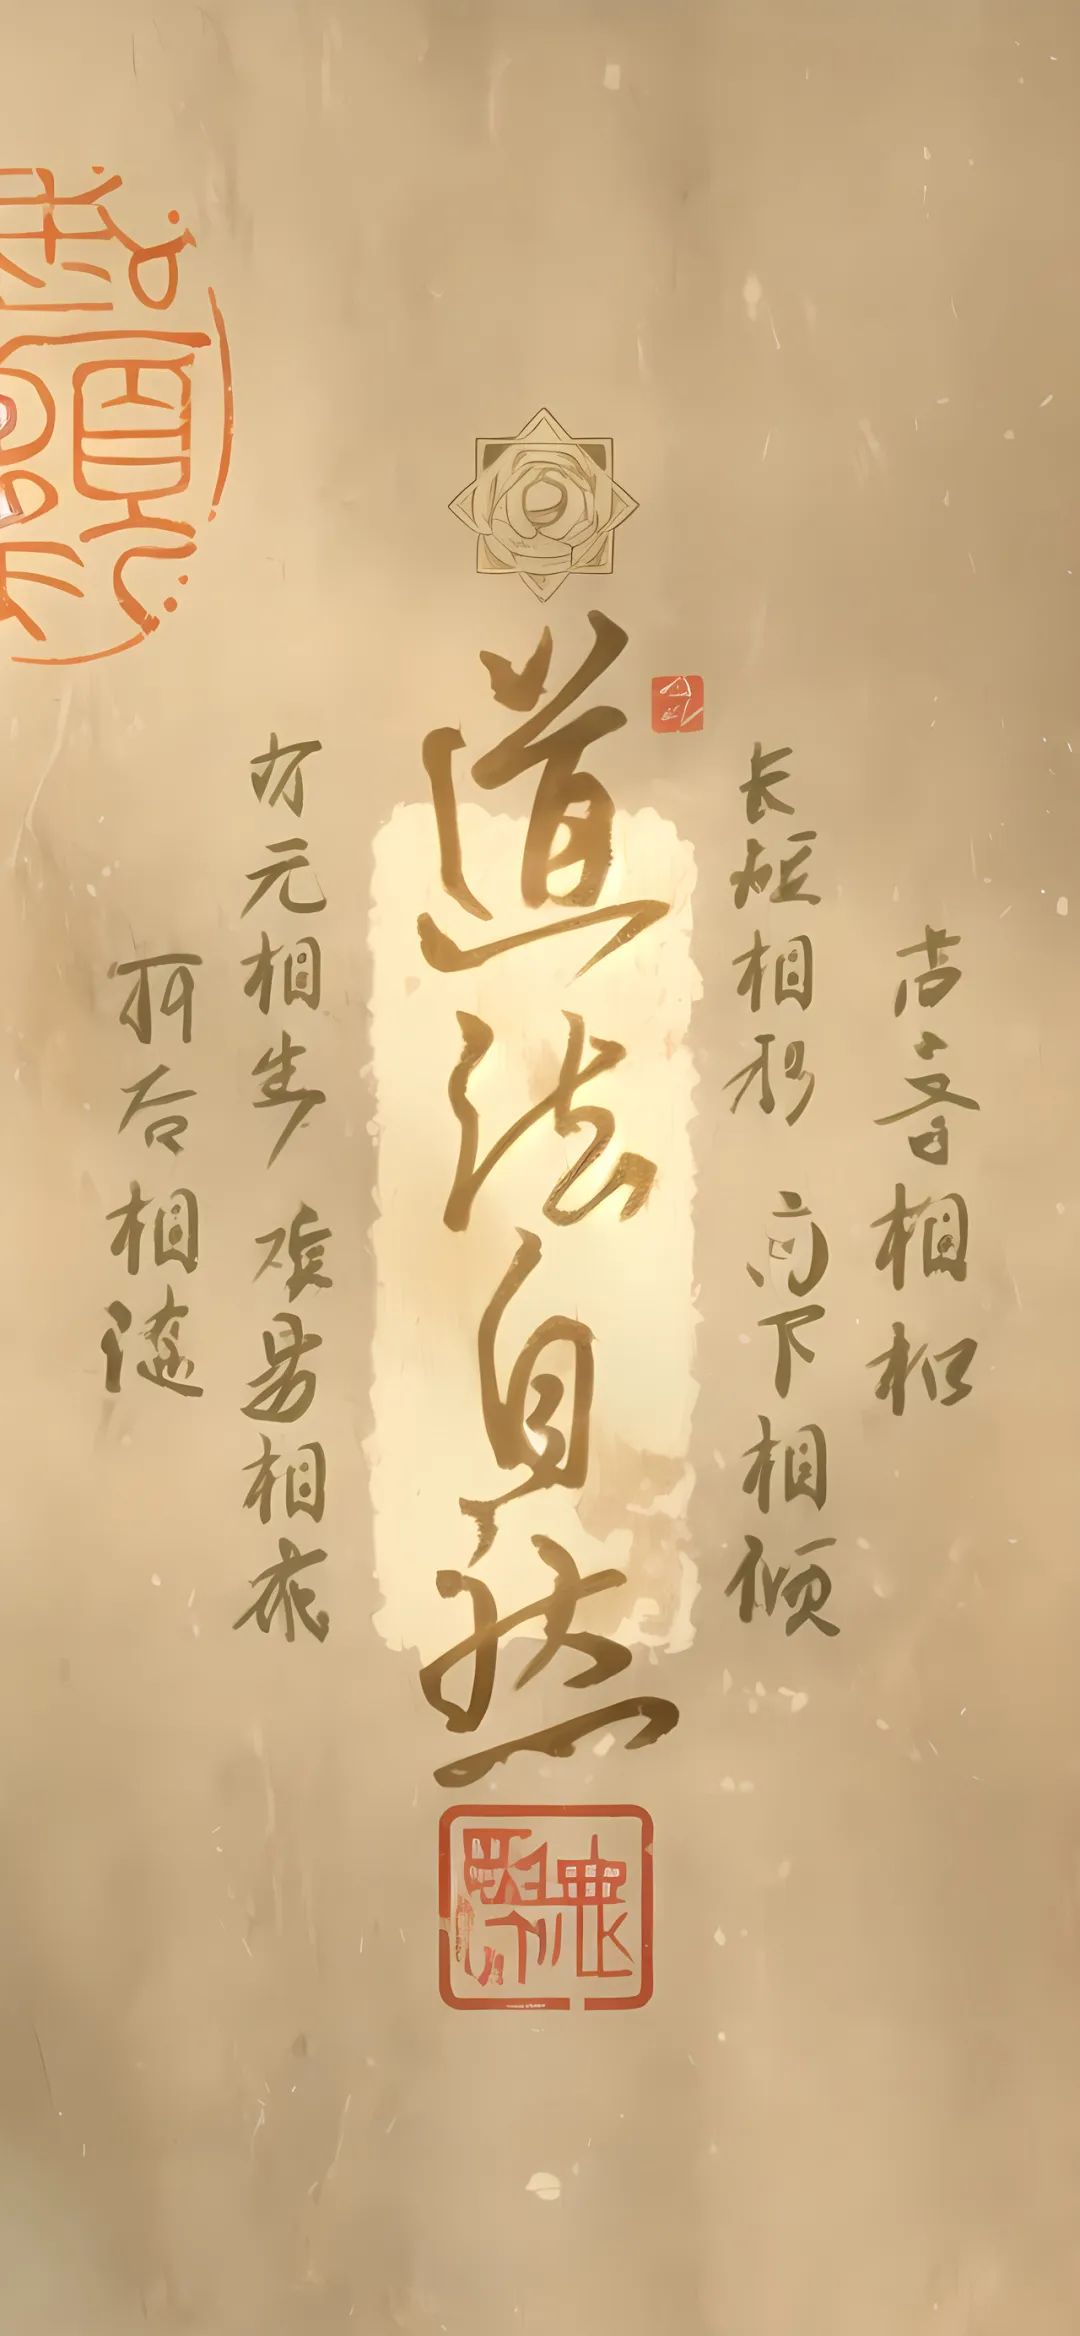 音相和
长短相形 高下相倾
道法自然
有无相生 难易相成
前后相随